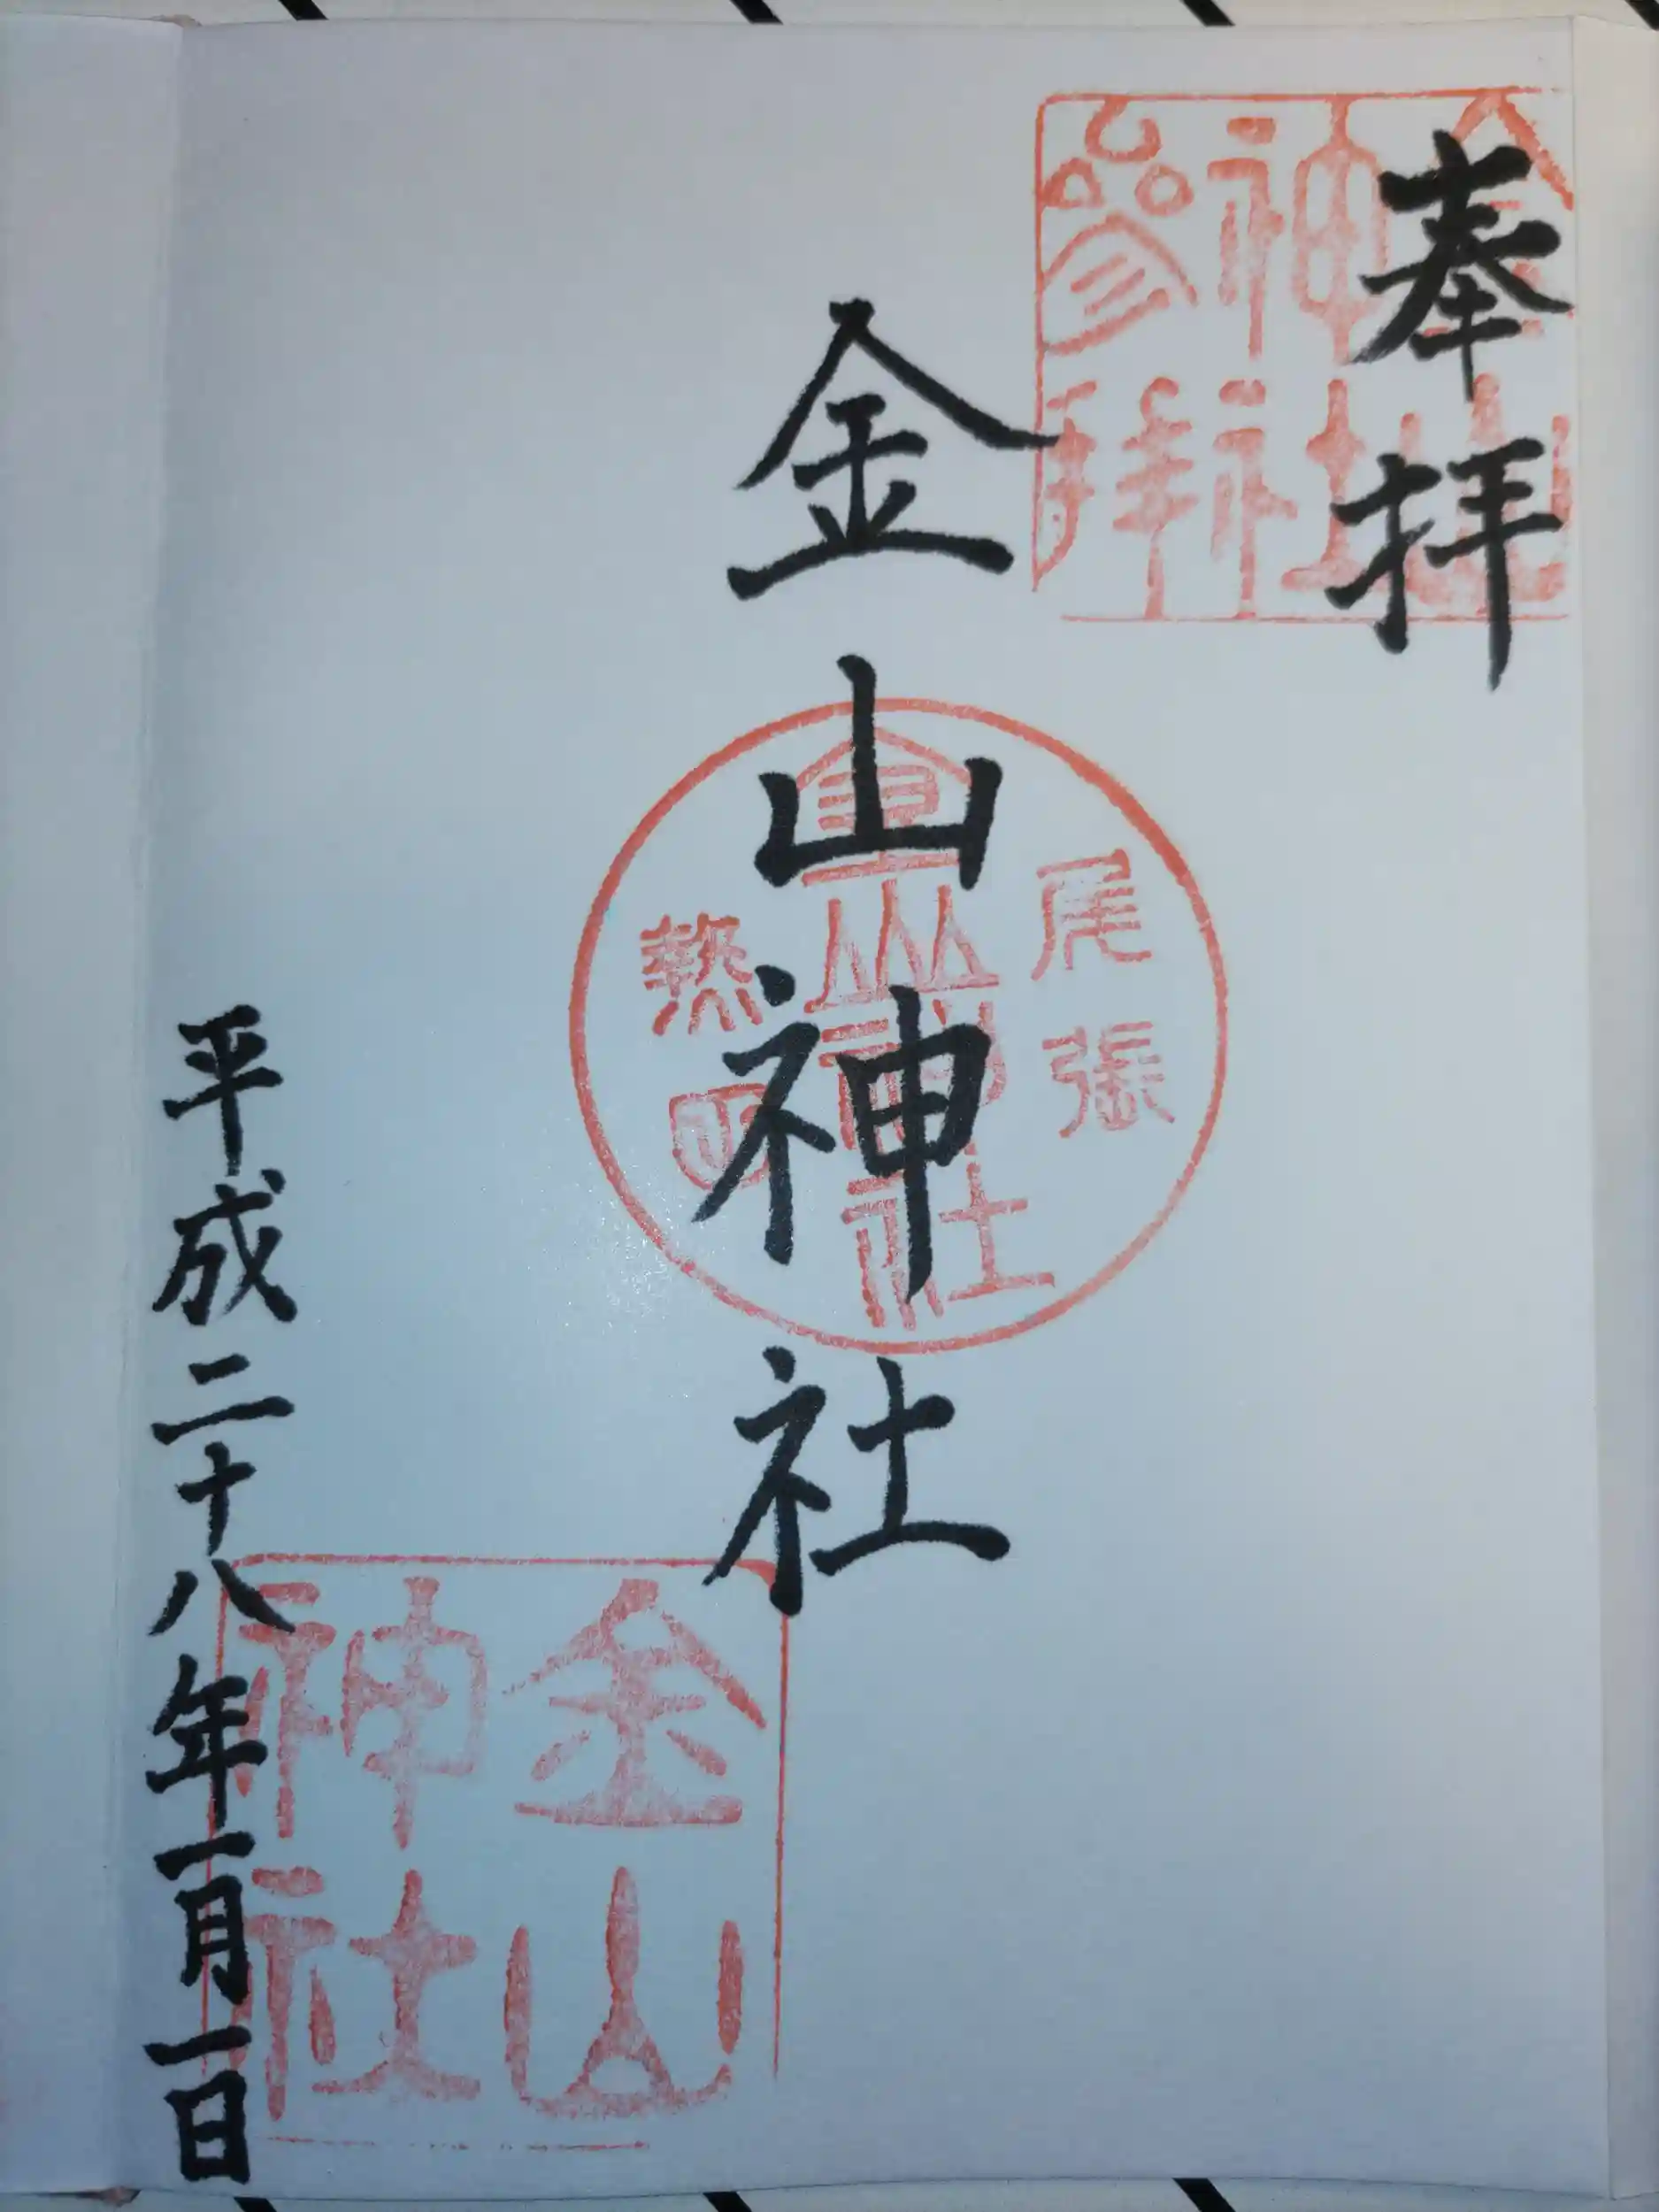 奉拝
金山神社参拝
金山神社
尾張
金山神社
熱田
平成二十八年一月一日
金山神社